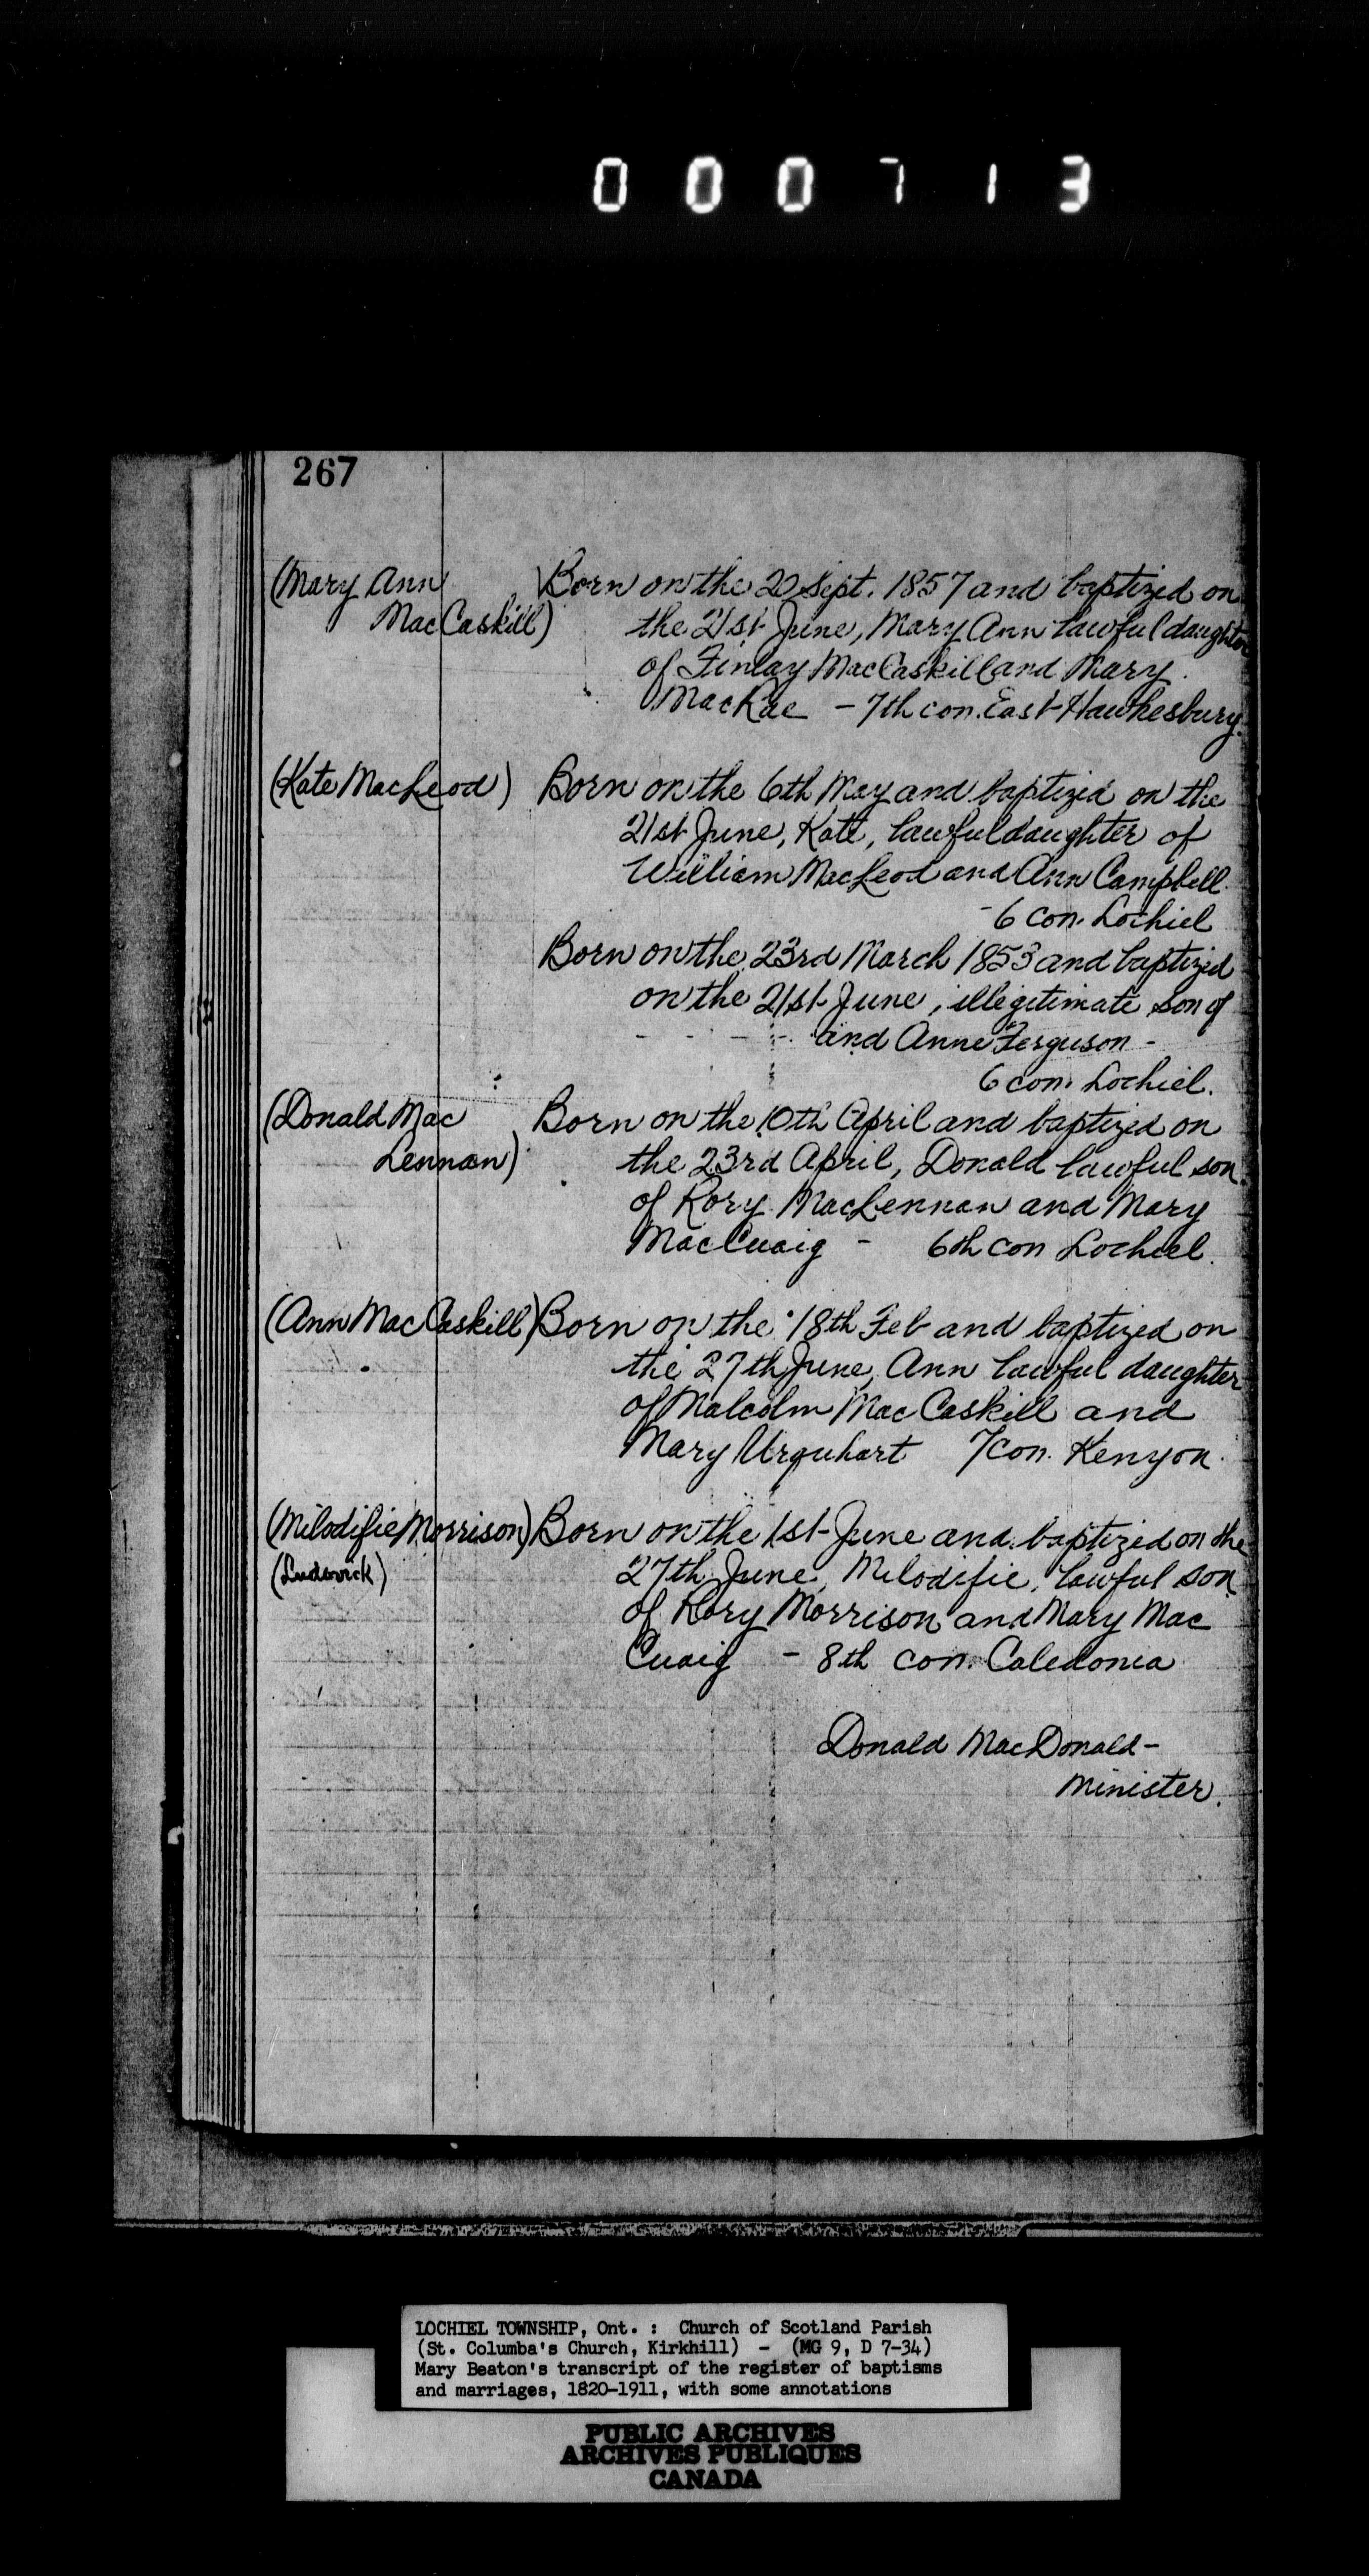 000713
267
(Mary Ann MacCaskill)
Born on the 20 Sept. 1857 and baptized on
the 21st June, Mary Ann lawful daughter
of Finlay MacCaskill and Mary
MacRae - 7th con. East Hawkesbury.
(Kate MacLeod)
Born on the 6th May and baptized on the
21st June, Kate, lawful daughter of
William MacLeod and Ann Campbell
- 6 con. Lochiel
Born on the 23rd March 1853 and baptized
on the 21st June, illegitimate son of
- - - - and Anne Ferguson -
6 con. Lochiel.
(Donald Mac
Lennan)
Born on the 10th April and baptized on
the 23rd April, Donald lawful son
of Rory MacLennan and Mary
MacCuaig - 6th con Lochiel.
(Ann MacCaskill)
Born on the 18th Feb and baptized on
the 27th June, Ann lawful daughter
of Malcolm MacCaskill and
Mary Urquhart 7 con. Kenyon.
(Milodifie Morrison)
(Ludovick)
Born on the 1st June and baptized on the
27th June, Milodifie, lawful son
of Rory Morrison and Mary Mac
Cuaig - 8th con. Caledonia
Donald MacDonald -
Minister.
LOCHIEL TOWNSHIP, Ont. : Church of Scotland Parish
(St. Columba's Church, Kirkhill) - (MG 9, D 7-34)
Mary Beaton's transcript of the register of baptisms
and marriages, 1820-1911, with some annotations
PUBLIC ARCHIVES
ARCHIVES PUBLIQUES
CANADA